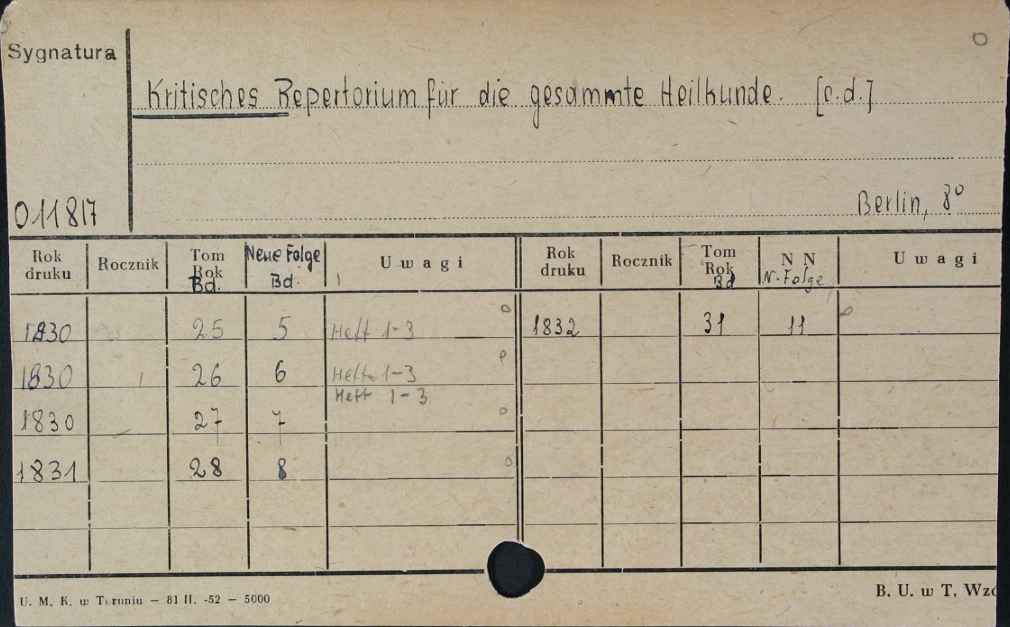 Sygnatura
Kritisches Repertorium für die gesammte Heilkunde. [c.d.]
011817
Berlin, 8°
Rok druku Rocznik Tom Rok Bd. Neue Folge Bd. Uwagi Rok druku Rocznik Tom Rok Bd N N N. Folge Uwagi
1830 25 5 Heft 1-3 1832 31 11
1830 26 6 Heft 1-3
Heft 1-3
1830 27 7
1831 28 8
U. M. K. w Toruniu — 81 II. -52 — 5000
B. U. w T. Wzó